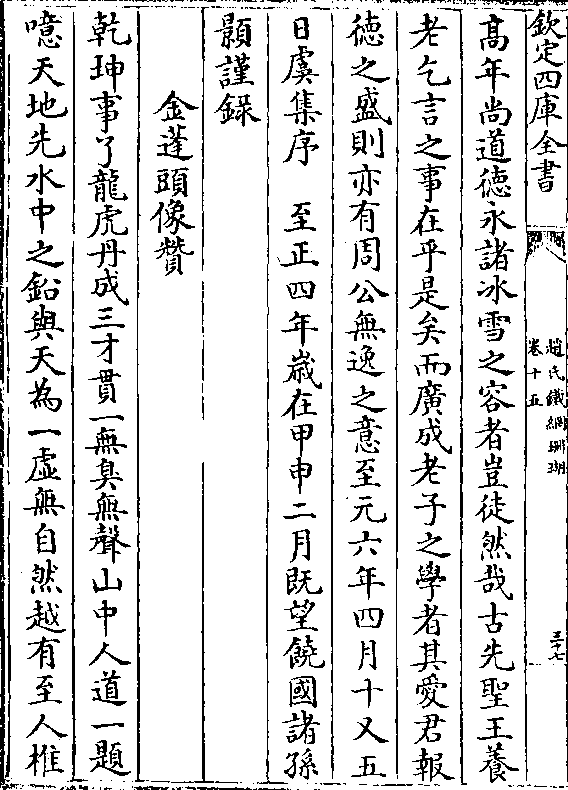 欽定四庫全書
趙氏鐵網珊瑚
卷十五
三十七
髙年尚道徳永諸冰雪之容者豈徒然哉古先聖王養
老乞言之事在乎是矣而廣成老子之學者其愛君報
徳之盛則亦有周公無逸之意至元六年四月十又五
日虞集序　至正四年嵗在甲申二月既望饒國諸孫
顥謹録
金蓬頭像贊
乾坤事了龍虎丹成三才貫一無臭無聲山中人道一題
噫天地先水中之鉛與天為一虛無自然越有至人椎